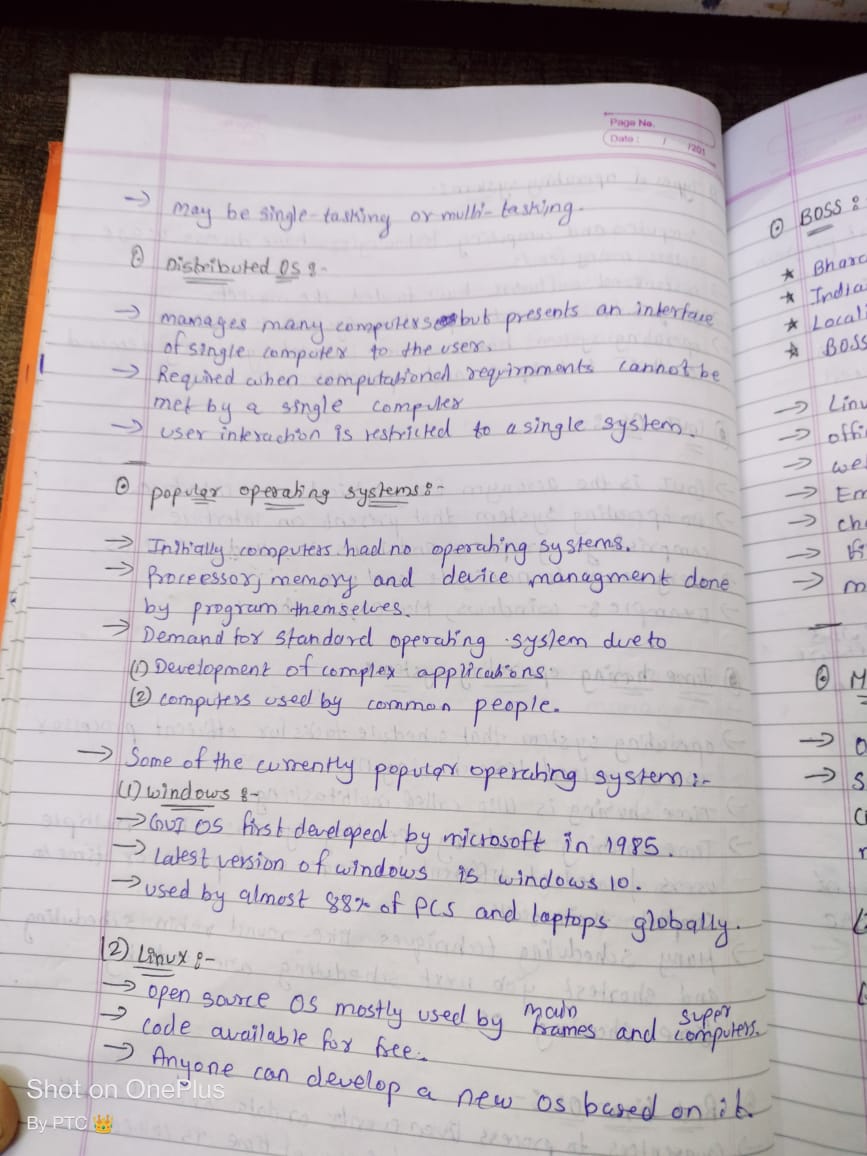 Page No.
Date : / /201
→ may be single-tasking or multi-tasking.
⊙ Distributed OS :-
→ manages many computers but presents an interface
of single computer to the user.
→ Required when computational requirnments cannot be
met by a single computer
→ user interaction is restricted to a single system.
⊙ popular operating systems :-
→ Initially computers had no operating systems.
→ Proceessor, memory and device managment done
by program themselves.
→ Demand for standard operating system due to
(1) Development of complex applications.
(2) computers used by common people.
→ Some of the currently popular operating system :-
(1) windows :-
→ GUI OS first developed by microsoft in 1985.
→ Latest version of windows is windows 10.
→ used by almost 88% of PCS and laptops globally.
(2) Linux :-
→ open source OS mostly used by main frames and super computers.
→ code available for free.
→ Anyone can develop a new OS based on it.
⊙ BOSS :
★ Bhara
★ India
★ Locali
★ BOSS
→ Linu
→ offi
→ we
→ Em
→ ch
→ m
⊙ M
→ O
→ S
Shot on OnePlus
By PTC 👑